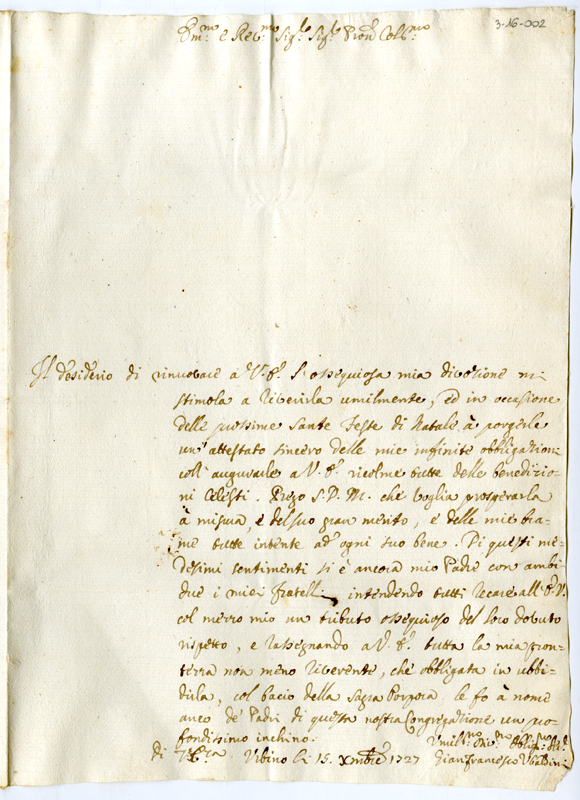 3-16-002
Em:mo e Rev:mo Sig:re Sig:re Pron Col:mo
Il desiderio di rinuovare a V. E. l'ossequiosa mia divozione mi
stimola a riverirla umilmente, ed in occasione
delle prossime Sante Feste di Natale à porgerle
un'attestato sincero delle mie infinite obbligazioni
coll'augurarle a V. E. ricolme tutte delle benedizio-
ni Celesti. Prego S. D. M. che voglia prosperarla
à misura, e del suo gran merito, e delle mie bra-
me tutte intente ad ogni suo bene. Di questi me-
desimi sentimenti si è ancora mio Padre con ambi-
due i miei fratelli intendendo tutti recare all'E. V.
col mezzo mio un tributo ossequioso del loro dovuto
rispetto, e rassegnando a V. E. tutta la mia pron-
tezza non meno riverente, che obbligata in ubbi-
dirla, col bacio della Sagra Porpora le fo à nome
anco de' Padri di questa nostra Congregazione un pro-
fondissimo inchino.
Umil:mo Div:mo Obblig:mo
di V. E.za Urbino li 15. Xmbre 1727 Gianfrancesco Ubaldini